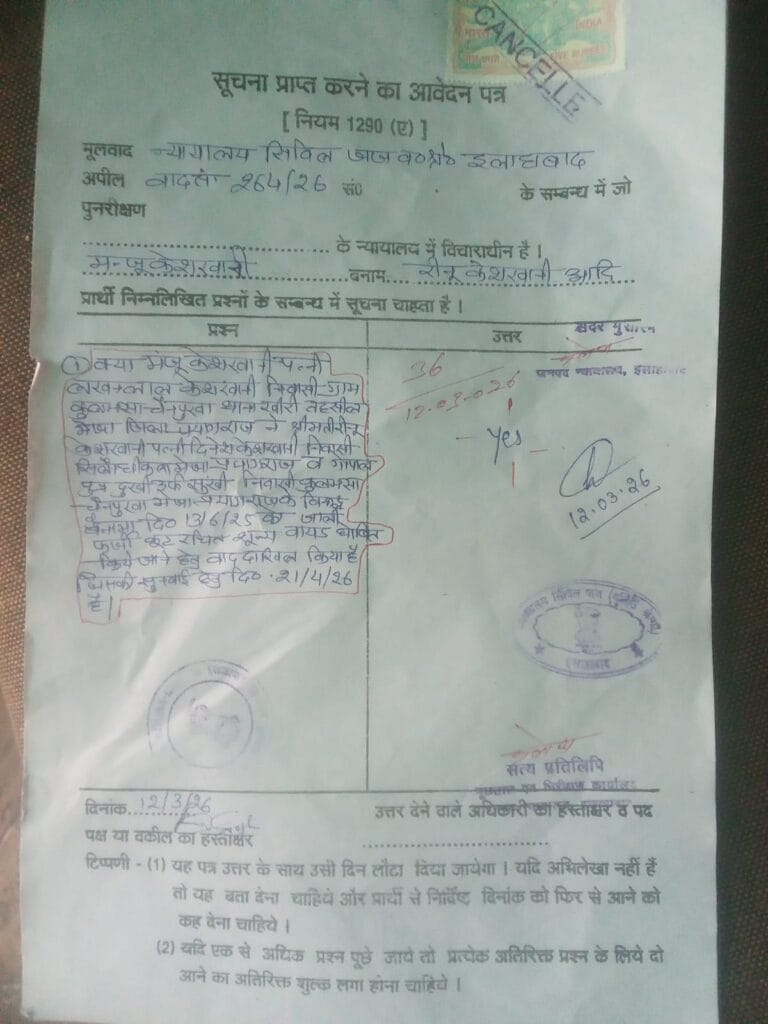 INDIA
CANCELLE
सूचना प्राप्त करने का आवेदन पत्र
[ नियम 1290 (ए) ]
मूलवाद न्यायालय सिविल जज व०श्रे० इलाहाबाद
अपील वाद सं 264/26 सं० के सम्बन्ध में जो
पुनरीक्षण
के न्यायालय में विचाराधीन है ।
मन्जू केशरवानी बनाम रीनू केशरवानी आदि
प्रार्थी निम्नलिखित प्रश्नों के सम्बन्ध में सूचना चाहता है ।
प्रश्न उत्तर
सदर मुंसरिम
जनपद न्यायालय, इलाहाबाद
① क्या मंजू केशरवानी पत्नी
लाल केशरवानी निवासी ग्राम
थाना खीरी तहसील
मेजा जिला प्रयागराज ने श्रीमती रीनू
केशरवानी पत्नी दिनेश केशरवानी निवासी
मेजा प्रयागराज व गोपाल
पुत्र दुर्खी उर्फ सुखी निवासी
मेजा प्रयागराज के विरूद्ध
बैनामा दि० 13/6/25 का जाली
फर्जी कूट रचित शून्य वायड घोषित
किये जाने हेतु वाद दाखिल किया है
जिसकी सुनवाई हेतु दि० 21/4/26
है।
36
12-03-026
Yes
12.03.26
इलाहाबाद
सत्य प्रतिलिपि
दिनांक 12/3/26
उत्तर देने वाले अधिकारी का हस्ताक्षर व पद
पक्ष या वकील का हस्ताक्षर
टिप्पणी - (1) यह पत्र उत्तर के साथ उसी दिन लौटा दिया जायेगा । यदि अभिलेखा नहीं हैं
तो यह बता देना चाहिये और प्रार्थी से निर्दिष्ट दिनांक को फिर से आने को
कह देना चाहिये ।
(2) यदि एक से अधिक प्रश्न पूछे जाये तो प्रत्येक अतिरिक्त प्रश्न के लिये दो
आने का अतिरिक्त शुल्क लगा होना चाहिये ।